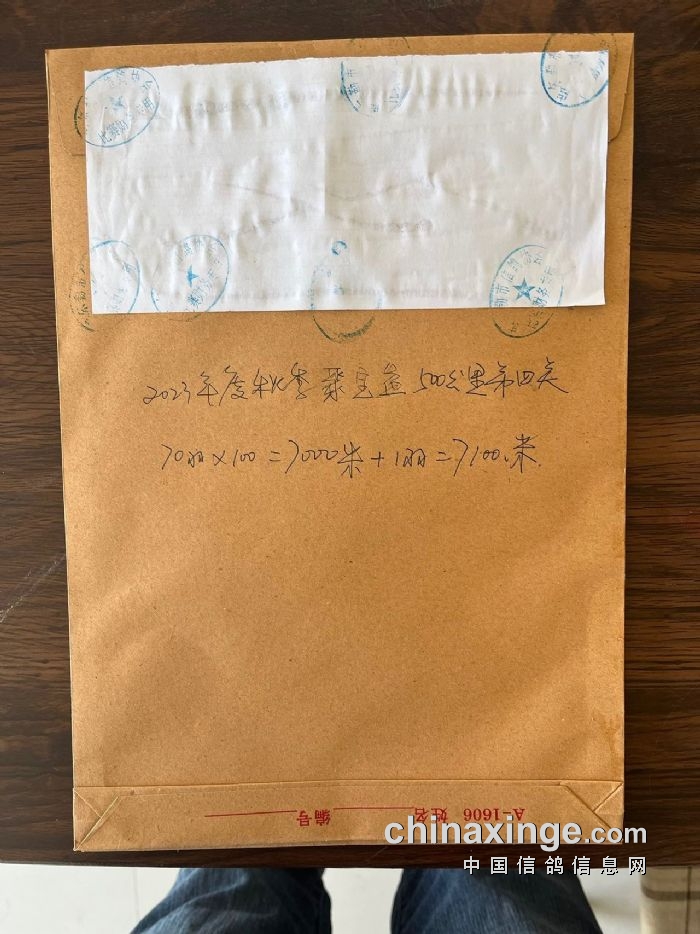 2023年度秋季聚宝盆500公里第四关
70羽×100=7000米+1羽=7100米
A-1606 姓名
编号
chinaxinge.com
中国信鸽信息网